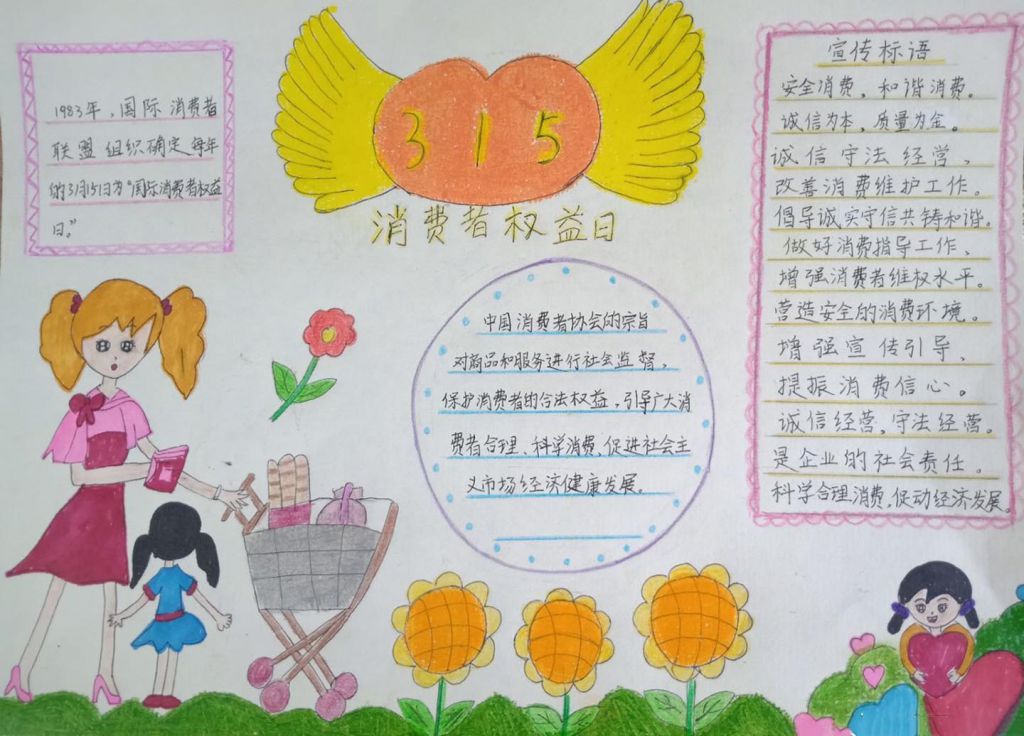 1983年,国际消费者
联盟组织确定每年
的3月15日为“国际消费者权益
日。”
315
消费者权益日
中国消费者协会的宗旨
对商品和服务进行社会监督,
保护消费者的合法权益,引导广大消
费者合理、科学消费,促进社会主
义市场经济健康发展。
宣传标语
安全消费,和谐消费。
诚信为本,质量为金。
诚信守法经营、
改善消费维护工作。
倡导诚实守信共铸和谐。
做好消费指导工作、
增强消费者维权水平。
营造安全的消费环境。
增强宣传引导、
提振消费信心。
诚信经营,守法经营。
是企业的社会责任。
科学合理消费,促动经济发展。